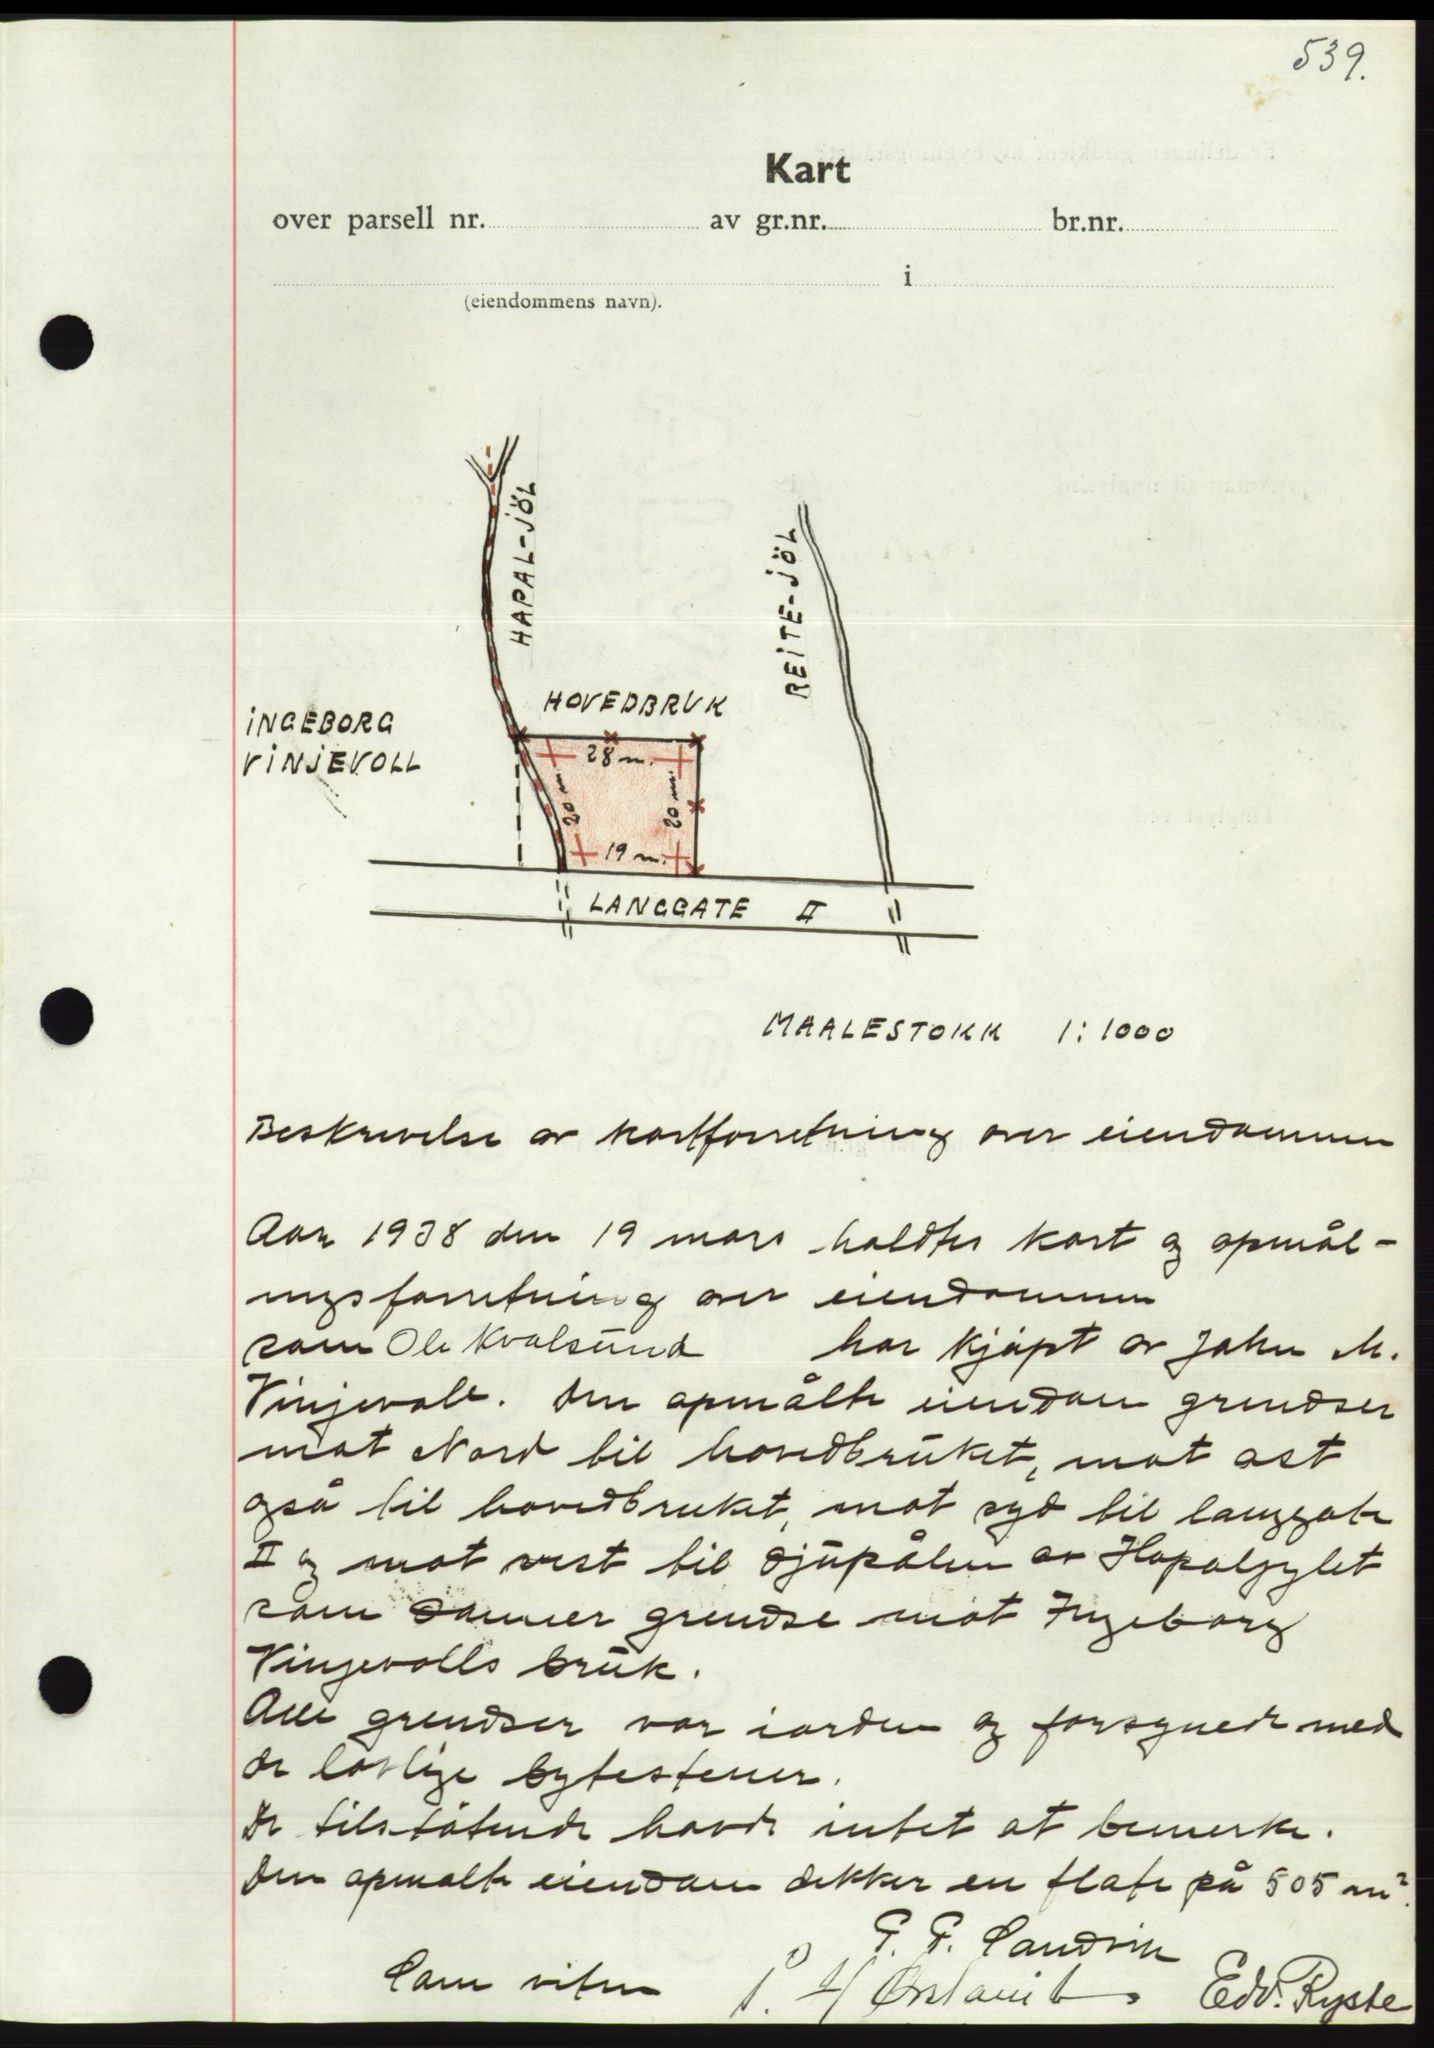 539.
Kart
over parsell nr. av gr.nr. br.nr.
i
(eiendommens navn).
HAPAL-JÖL
REITE-JÖL
HOVEDBRUK
INGEBORG
VINJEVOLL
28 m.
20 m.
20 m.
19 m.
LANGGATE II
MAALESTOKK 1:1000
Beskrivelse av kartforretning over eiendommen
Aar 1938 den 19 mars holdtes kart og opmål-
ingsforretning over eiendommen
som Ole Kvalsund har kjöpt av John M.
Vinjevoll. Den opmålte eiendom grendser
mot Nord til hovedbruket, mot øst
også til hovedbruket, mot syd til langgate
II og mot vest til djupålen av Hapaljylet
som danner grendse mot Ingeborg
Vinjevolls bruk.
Alle grendser var i orden og forsynede med
de lovlige bytestener.
De tilstötende havde intet at bemerke.
Den opmalte eiendom dekker en flate på 505 m².
P. P. Sandvik
Som vitne Edv. Ryste